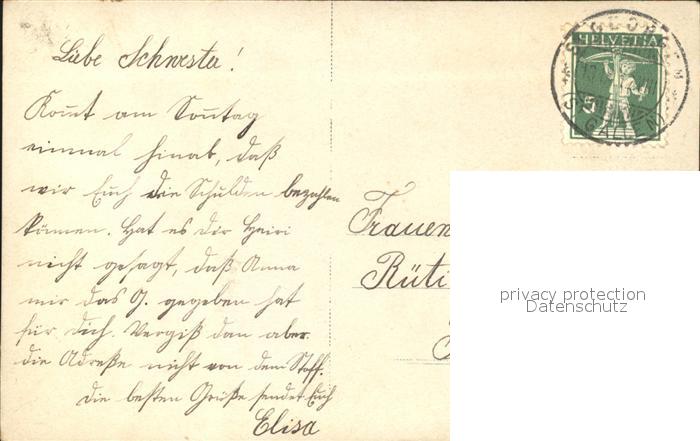 Liebe Schwesta!
Kom̄t am Son̄tag
einmal hinab, daß
wir Euch die Schulden bezahlen
kämen. Hat es dir Heiri
nicht gesagt, daß Anna
mir das G. gegeben hat
für dich. Vergiß dan aber
die Adreße nicht von dem Stoff.
Die besten Grüße sendet Euch
Elisa
ST. GEORGEN
HELVETIA
5
(ST. GALLEN)
Frauen
Rüti
privacy protection
Datenschutz